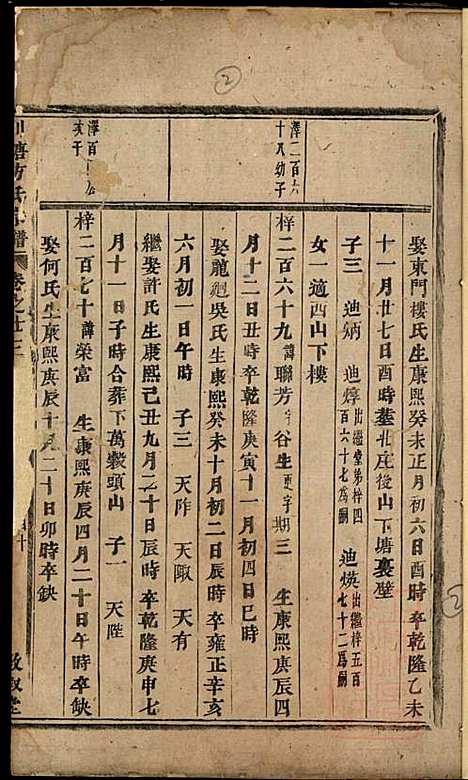 2
澤二百六
十八幼子
娶東門樓氏生康熙癸未正月初六日酉時卒乾隆乙未
十一月廿七日酉時塟北庄後山下塘裏壁
子三 迪炳 迪焞出繼堂弟梓四百六十七為嗣 迪煐出繼梓五百七十二爲嗣
女一適西山下樓
梓二百六十九諱聯芳字谷生更字期三 生康熙庚辰四
月十二日丑時卒乾隆庚寅十一月初四日巳時
娶龍廻吳氏生康熙癸未十月初二日辰時卒雍正辛亥
六月初一日午時 子三 天阼 天陬 天有
繼娶許氏生康熙己丑九月二十日辰時卒乾隆庚申七
月十一日子時合葬下萬轂頭山 子一 天陛
澤百
亥子
梓二百七十諱榮富 生康熙庚辰四月二十日午時卒缺
娶何氏生康熙庚辰十月二十日卯時卒缺
卷之廿三
敦叙堂
2